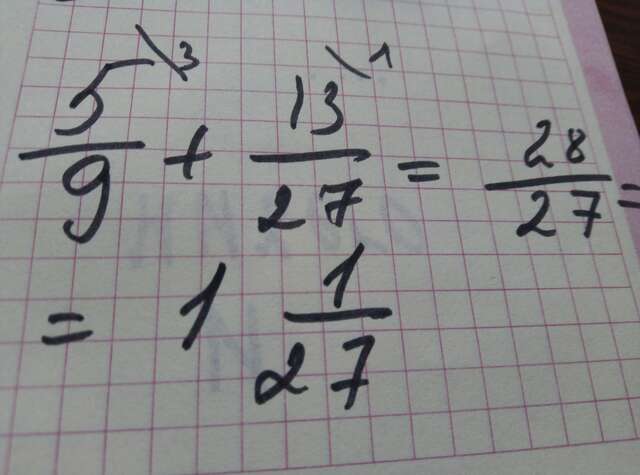 5\3/9 + 13\1/27 = 28/27 =
= 1 1/27